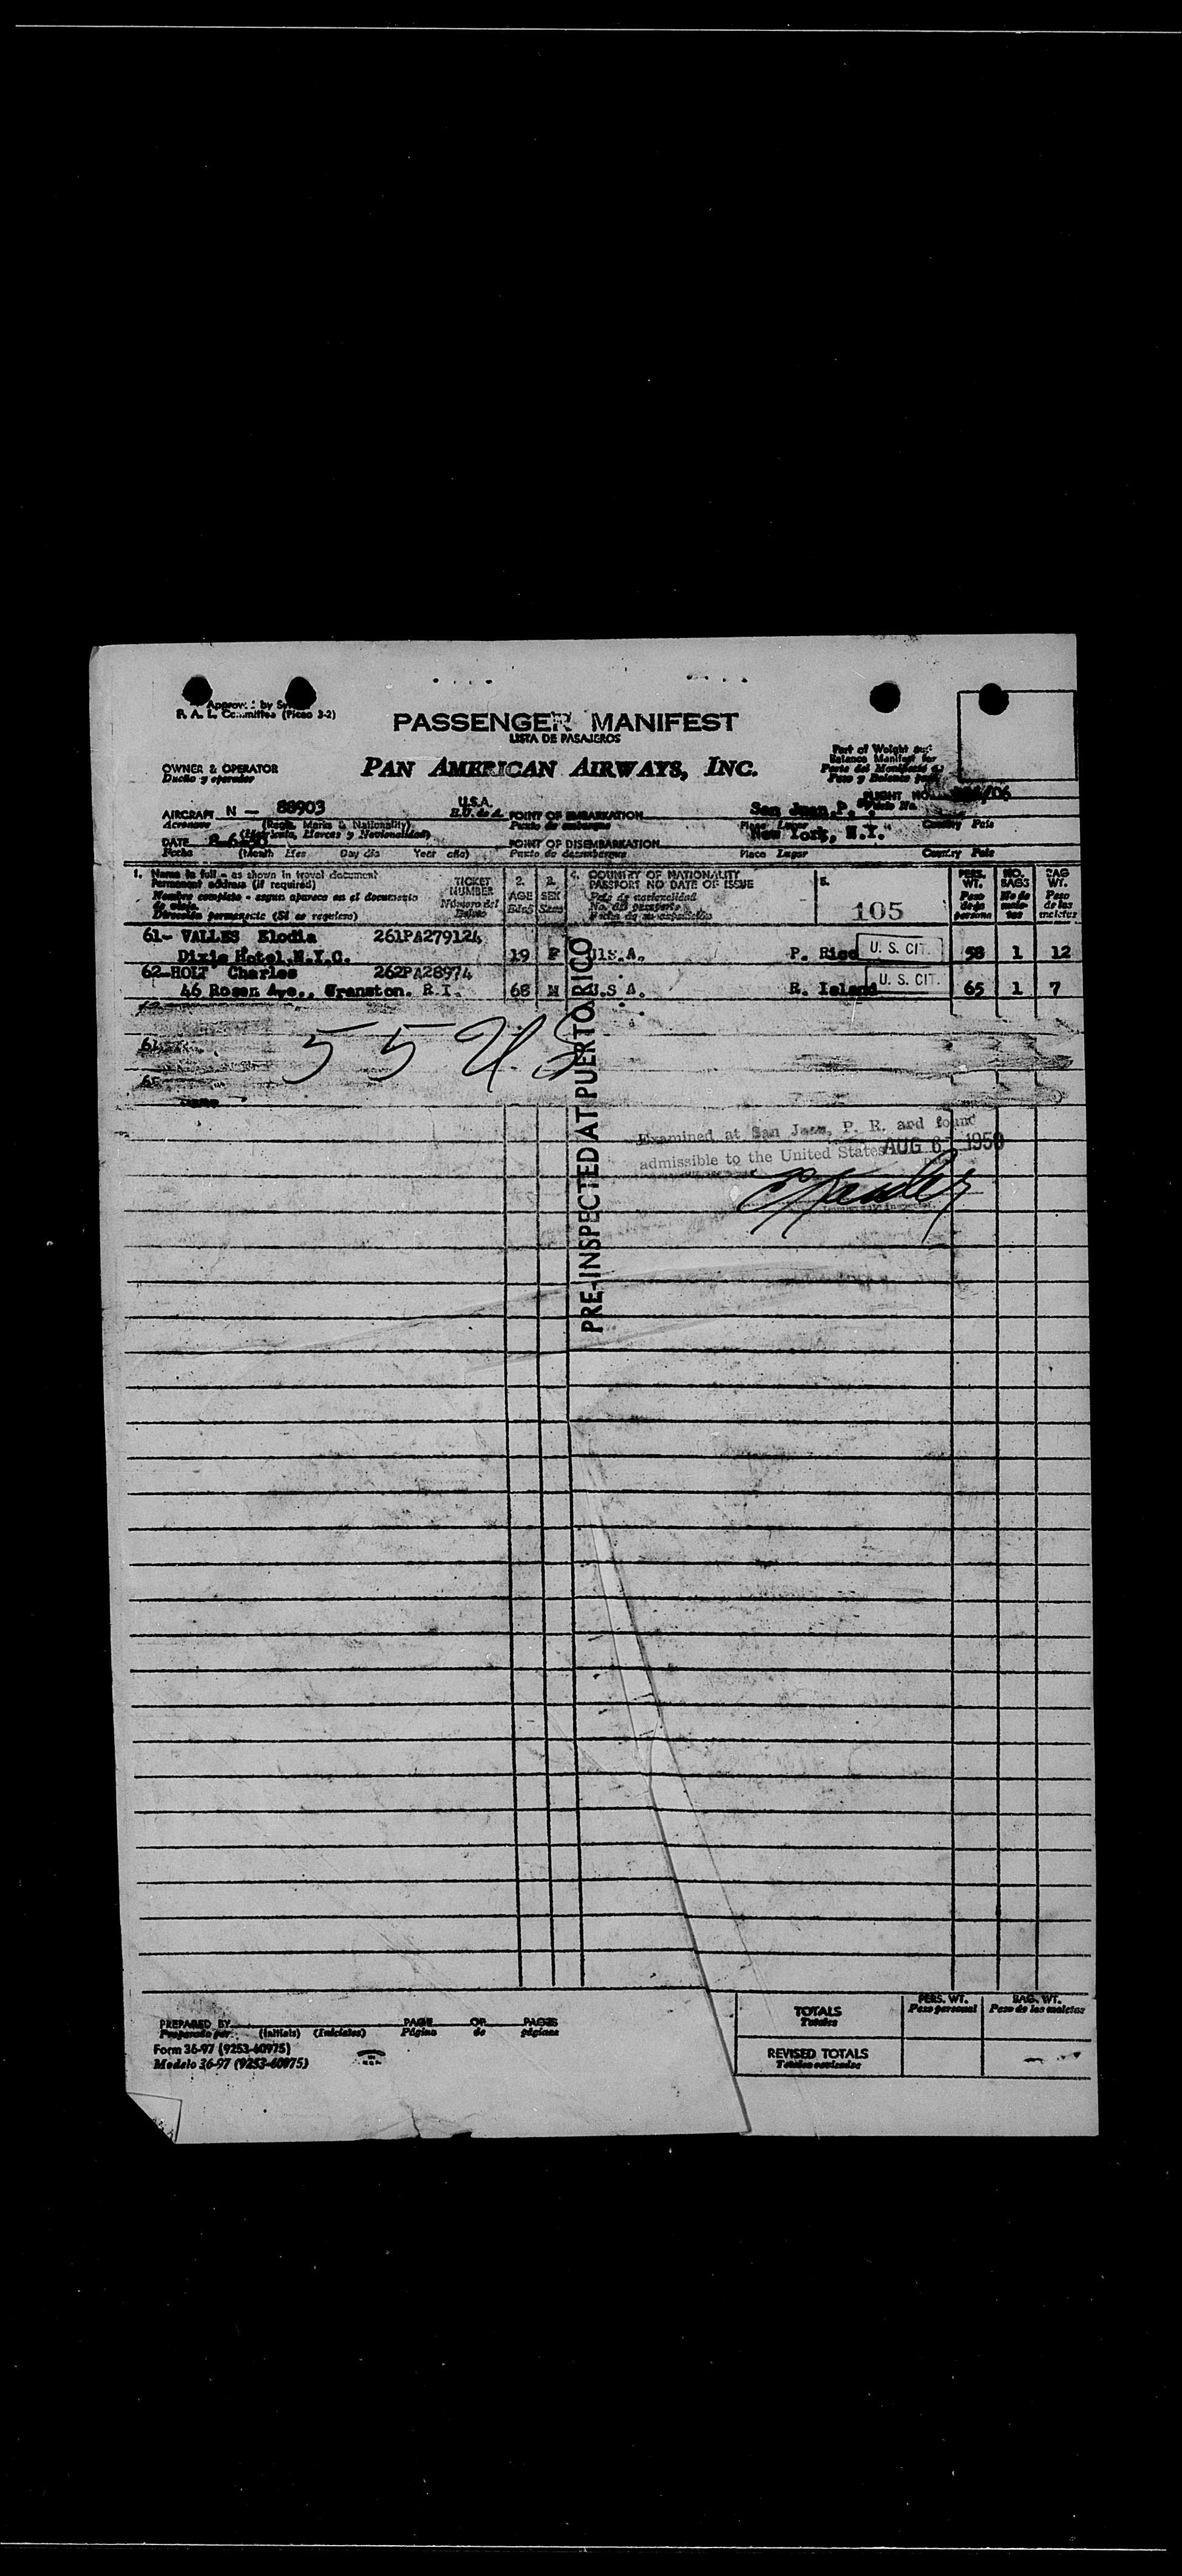 P. A. L. Committee (Picao 3-2)
PASSENGER MANIFEST
LISTA DE PASAJEROS
OWNER & OPERATOR
Dueño y operador
PAN AMERICAN AIRWAYS, INC.
Part of Weight and
Balance Manifest for
Parte del Manifiesto de
Peso y Balance para
FLIGHT NO.
AIRCRAFT N - 88903
U.S.A.
E.U. de A.
POINT OF EMBARKATION
San Juan, P.
Aeronave
(Regis. Marks & Nationality)
(Matricula, Marcas y Nacionalidad)
Punto de embarque
Place Lugar
Country Pais
DATE 8-6-50
POINT OF DISEMBARKATION
New York, N.Y.
Fecha (Month Mes Day dia Year año)
Punto de desembarque
Place Lugar
Country Pais
1. Name in full - as shown in travel document
Permanent address (if required)
Nombre completo - segun aparece en el documento
de viaje
Dirección permanente (Si es requiere)
TICKET
NUMBER
Número del
Boleto
2.
AGE
Edad
3.
SEX
Sexo
4. COUNTRY OF NATIONALITY
PASSPORT NO DATE OF ISSUE
País de nacionalidad
No. del pasaporte
Fecha de su expedición
5.
105
PERS.
WT.
Peso
de la
persona
NO.
BAGS
No de
male-
tas
BAG
WT.
Peso
de las
maletas
61- VALLES Elodia 261PA279124
Dixie Hotel, N.Y.C. 19 F U.S.A. P. Rico U. S. CIT. 58 1 12
62-HOLT Charles 262PA28974
46 Rosen Ave., Cranston. R.I. 68 M U.S.A. R. Island U. S. CIT. 65 1 7
55 U.S
PRE-INSPECTED AT PUERTO RICO
Examined at San Juan, P. R. and found
admissible to the United States AUG 6 1950
TOTALS
Totales
PERS. WT.
Peso personal
BAG. WT.
Peso de las maletas
REVISED TOTALS
Totales revisados
PREPARED BY
Preparado por: (Initials) (Iniciales)
PAGE OF PAGES
Página de páginas
Form 36-97 (9253-60975)
Modelo 36-97 (9253-60975)